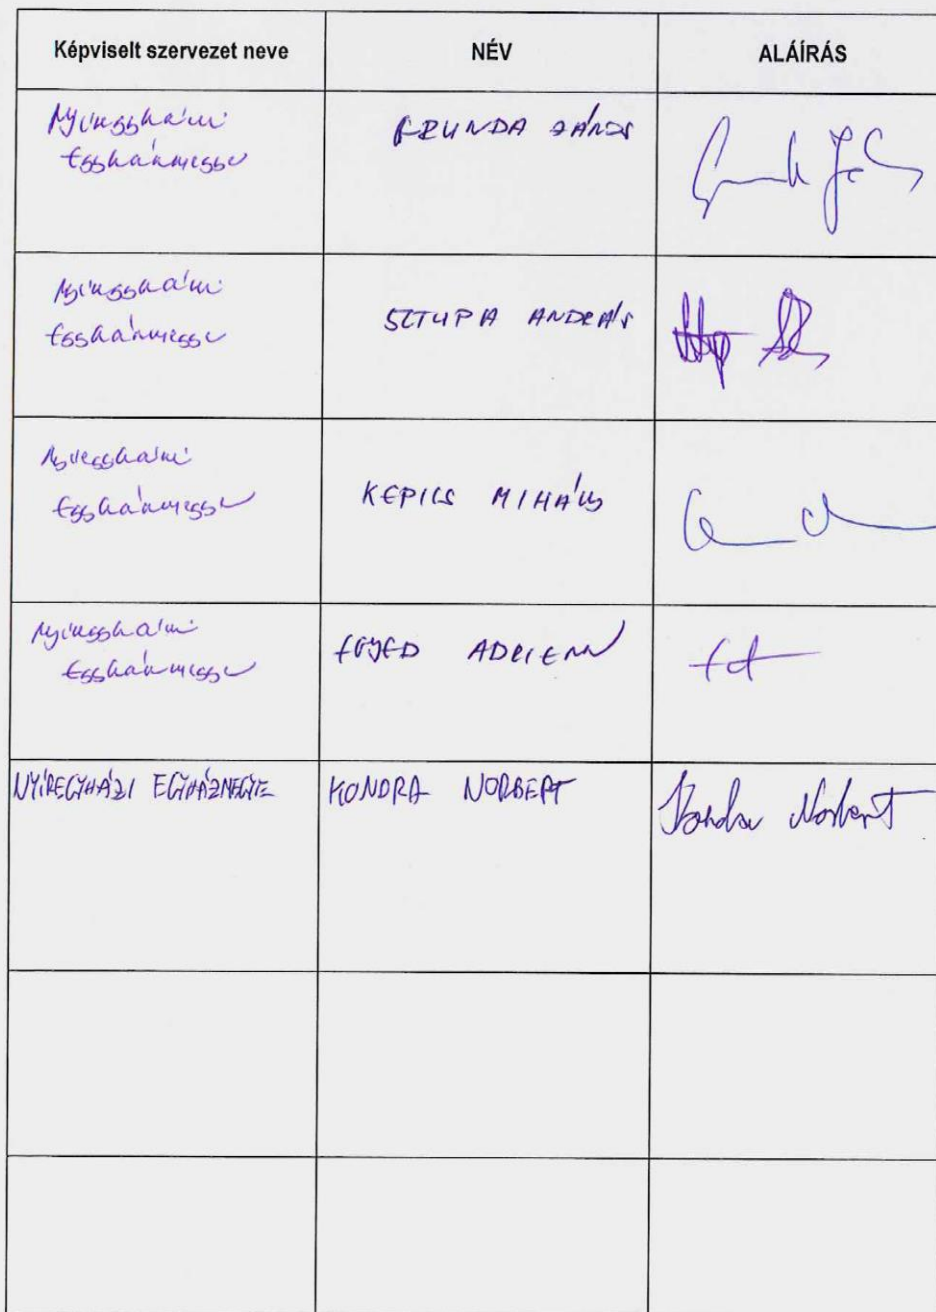 Képviselt szervezet neve
NÉV
ALÁÍRÁS
Nyíregyházi
Egyházmegye
JÁNOS
Nyíregyházi
Egyházmegye
SZTUPA ANDRÁS
Nyíregyházi
Egyházmegye
KEPICS MIHÁLY
Nyíregyházi
Egyházmegye
EGYED ADRIENN
NYÍREGYHÁZI EGYHÁZMEGYE
KONDRA NORBERT
Kondra Norbert